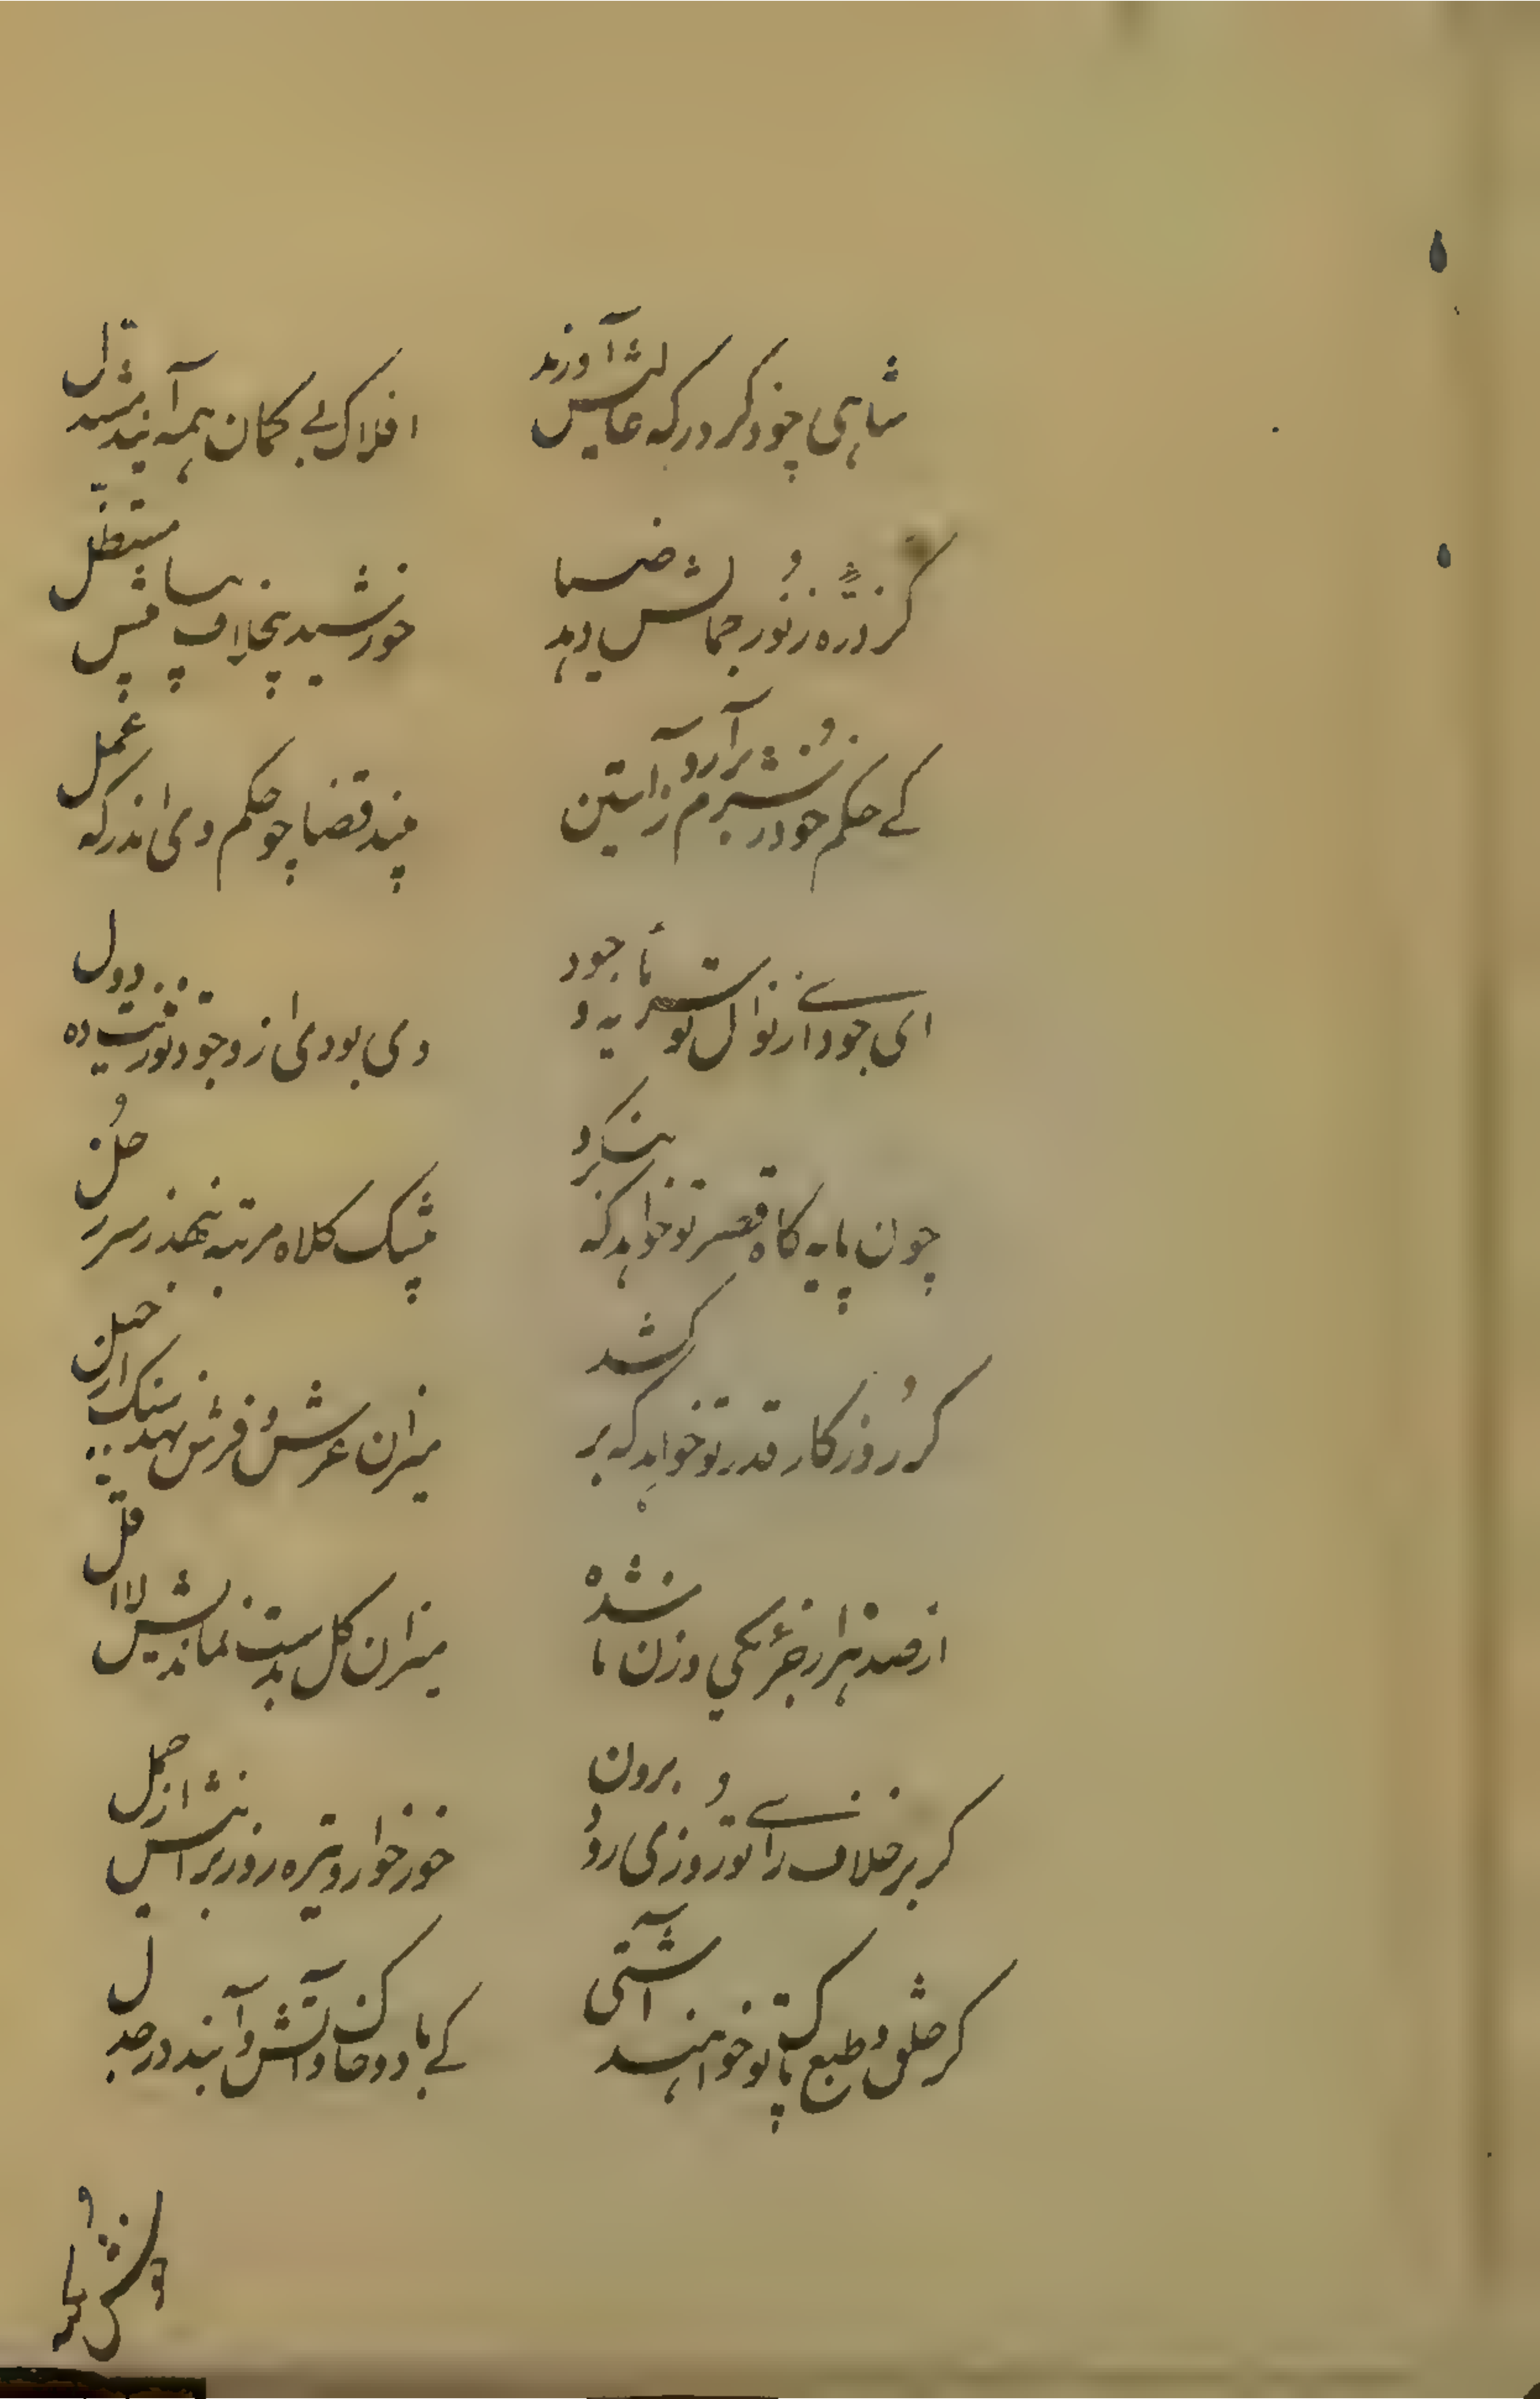 شاهی چو ذکر درکه عالیش آورند
افلاک بے کمان همه آیند مشتدل
کر ذره ز نور جمالش دهد ضیا
خورشید بخلاف پاشیش مستظل
کے حکم خود ز شرم برآرد ز آستین
بیند قضا چو حکم وی اندر که عمل
ای جود از نوال تو سرمایه وجود
وی بودی از وجود تو زینت ده دول
چون پایه کاه قصر تو خواهد که بنکرد
بیشک کلاه مرتبه بنهد ز سر
کر روزکار قدر تو خواهد که برکشد
میزان عرش و فرش نهد سنک از جبل
از صد هزار جزء یکی وزن ناشده
میزان کل بدست نماندیش لااقل
کر بر خلاف رای تو روزی رود برون
خور خوار و تیره روز برانیش از حمل
کر خلق و طبع پاکت تو خواهند آشتی
کے باد و خاک و آتش و آبند در جدل